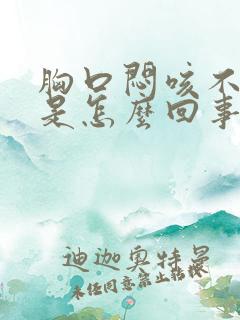 胸口悶咳不
是怎麼回事
迪迦奧特曼
未经同意禁止转㧱